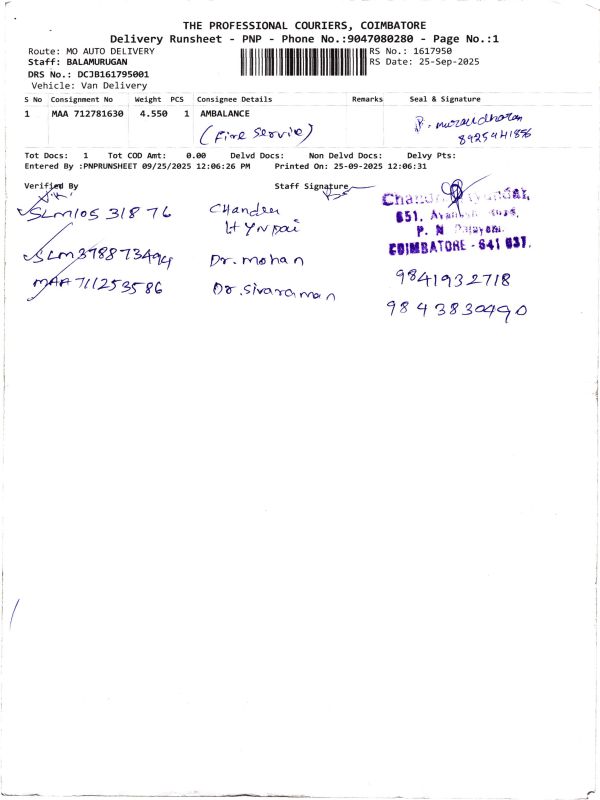 THE PROFESSIONAL COURIERS, COIMBATORE
Delivery Runsheet - PNP - Phone No.:9047080280 - Page No.:1
Route: MO AUTO DELIVERY RS No.: 1617950
Staff: BALAMURUGAN RS Date: 25-Sep-2025
DRS No.: DCJB161795001
Vehicle: Van Delivery
S No Consignment No Weight PCS Consignee Details Remarks Seal & Signature
1 MAA 712781630 4.550 1 AMBALANCE
(Fire Service)
Tot Docs: 1 Tot COD Amt: 0.00 Delvd Docs: Non Delvd Docs: Delvy Pts:
Entered By :PNPRUNSHEET 09/25/2025 12:06:26 PM Printed On: 25-09-2025 12:06:31
Verified By Staff Signature
SLM105 31876
651,
P. N
COIMBATORE - 641 037.
SLM378873494 Dr. mohan
9841932718
MAA711253586 Dr. Sivaraman
9843830490